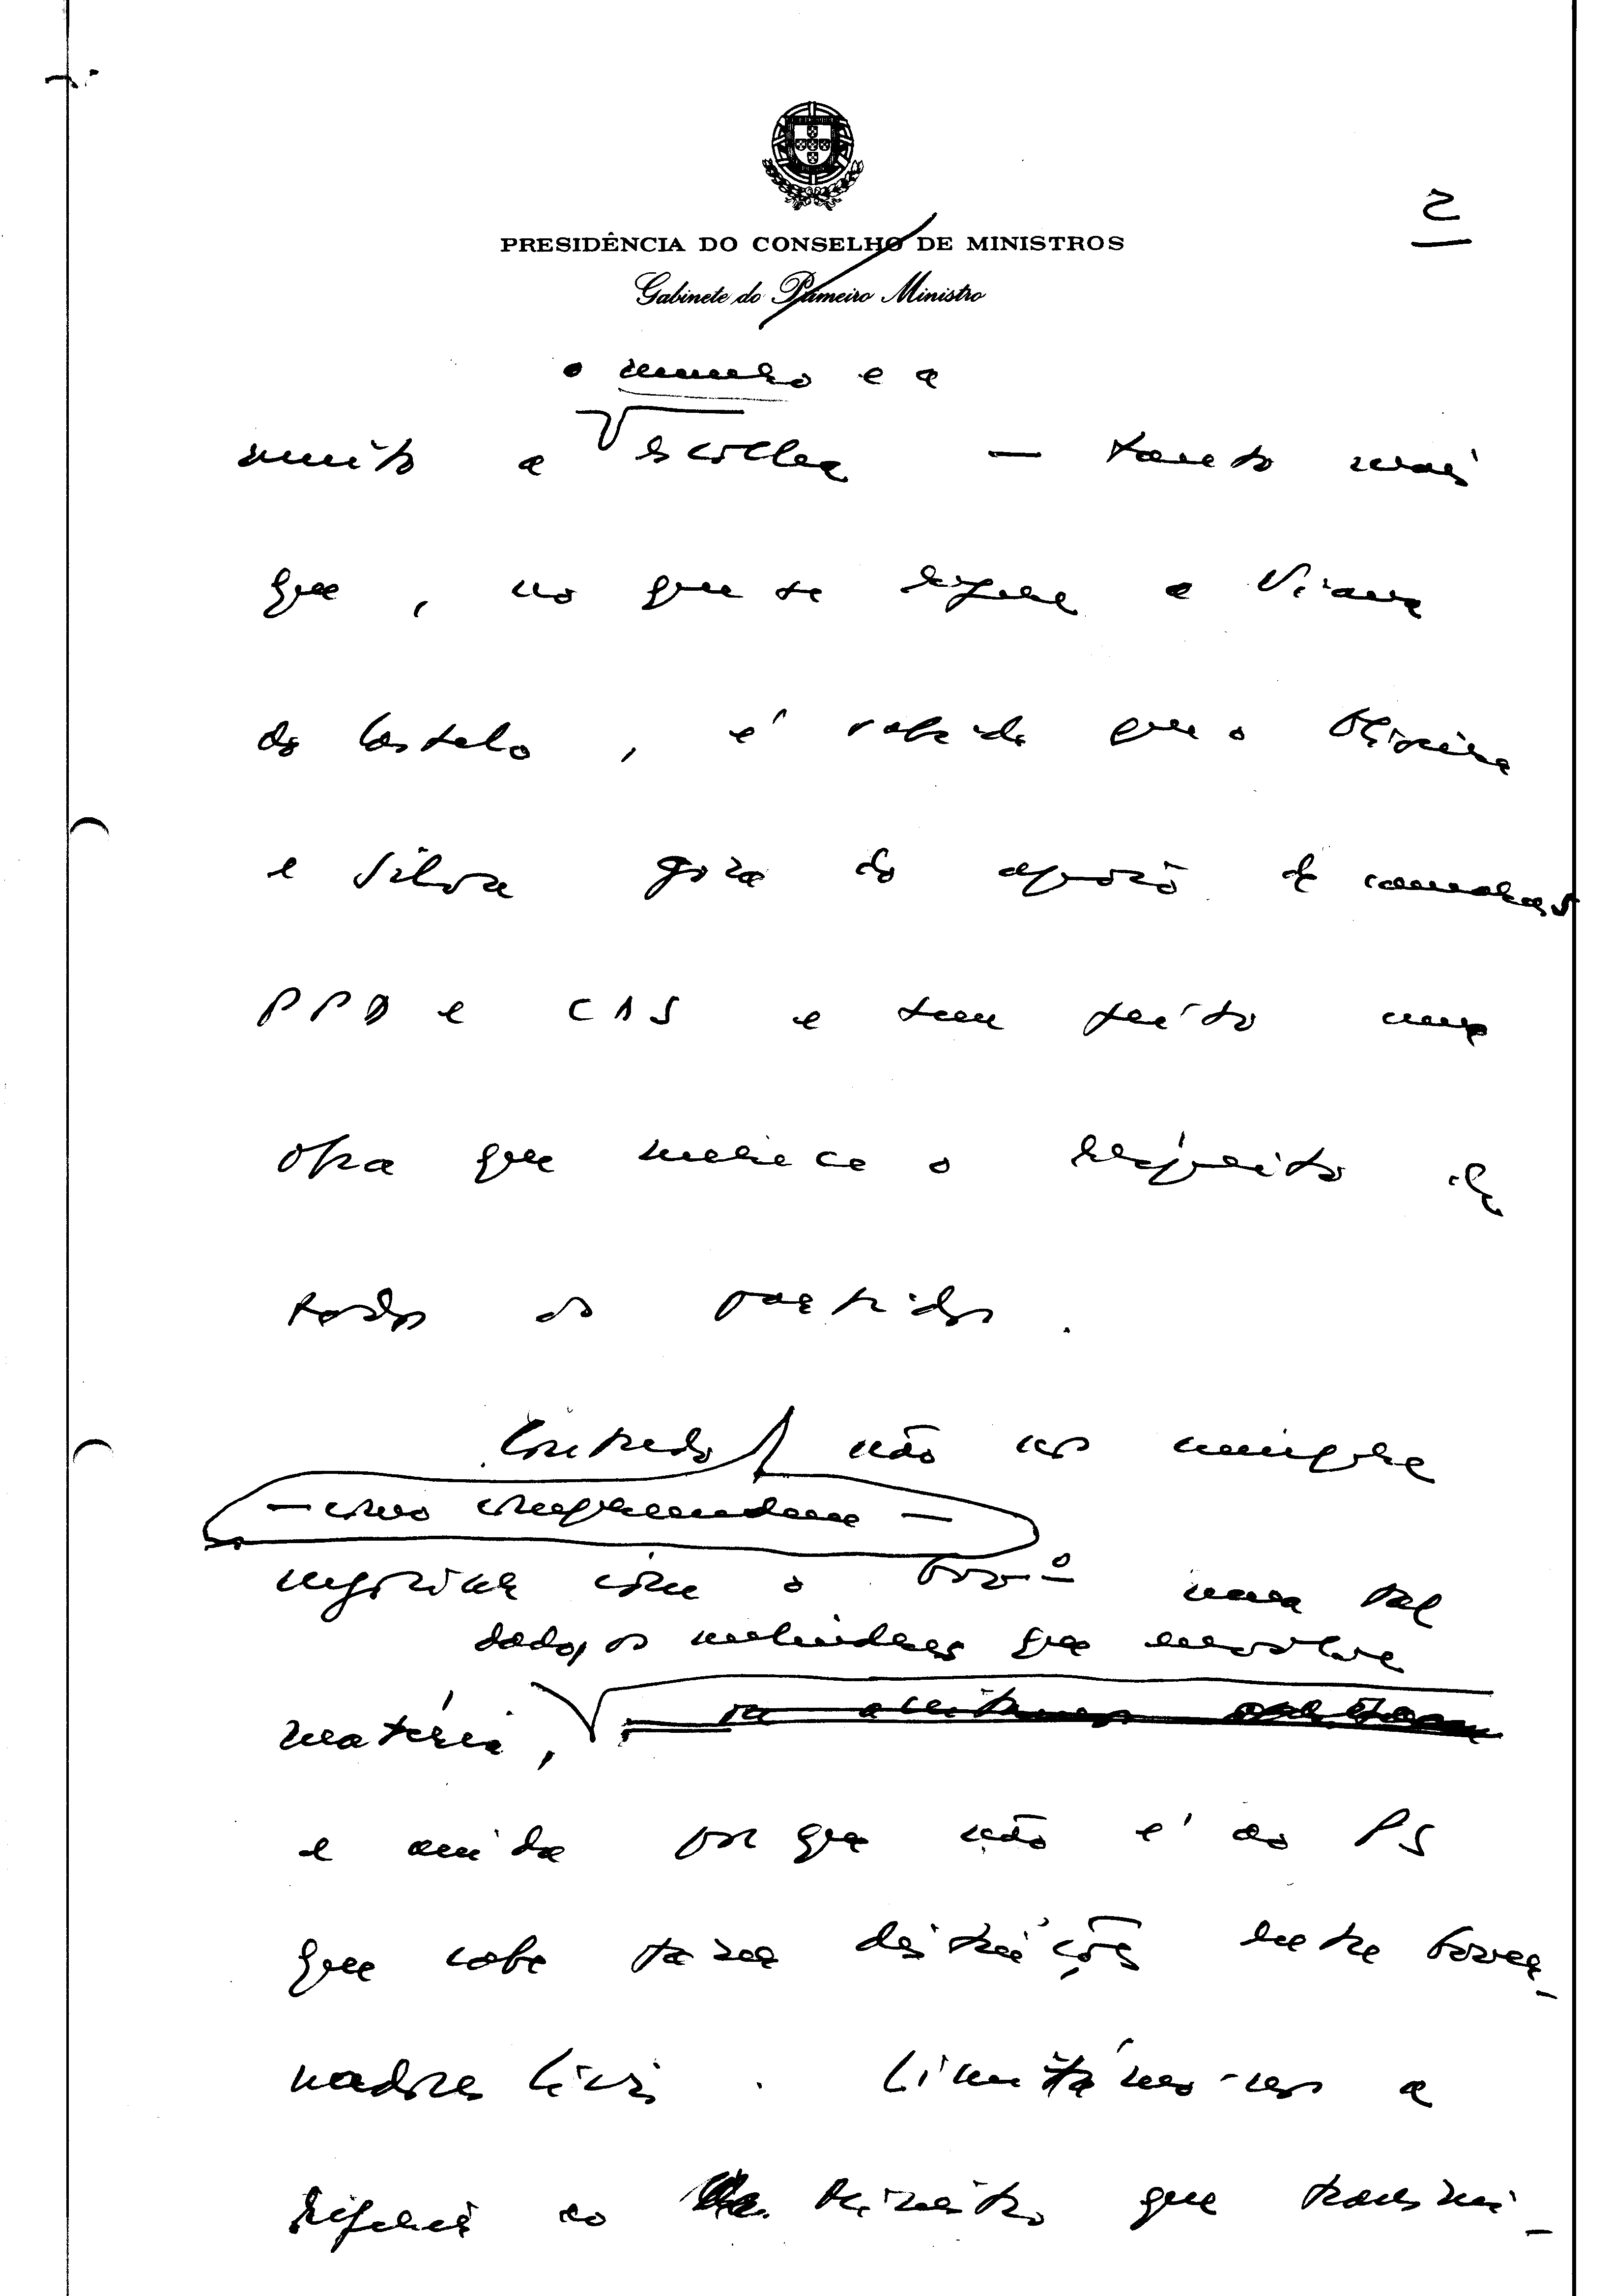 2
PRESIDÊNCIA DO CONSELHO DE MINISTROS
Gabinete do Primeiro Ministro
o e a
muito a escolha — tanto mais
que, no que se refere a Viana
do Castelo, é sabido que o Oliveira
e Silva goza do apoio de camaradas
PPD e CDS e tem feito uma
obra que merece o respeito de
todos os partidos.
Contudo não nos cumpre
— como compreendem —
negociar com o Govº uma tal
dados os melindres que envolve
matéria,
e ainda porque não é ao PS
que cabe fazer distinções entre Gover-
nadores Civis. Limitámo-nos a
referir ao Ministro que transmi-